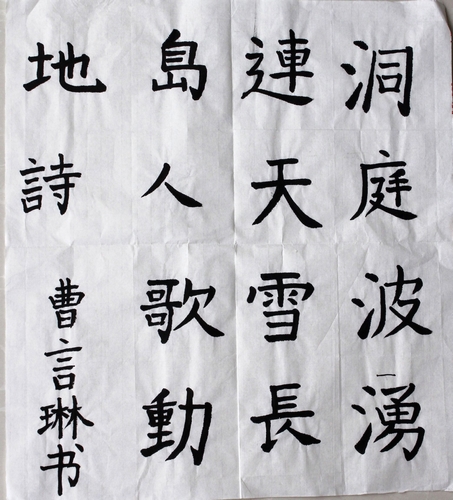 洞庭波湧
連天雪長
島人歌動
地詩
曹言琳书